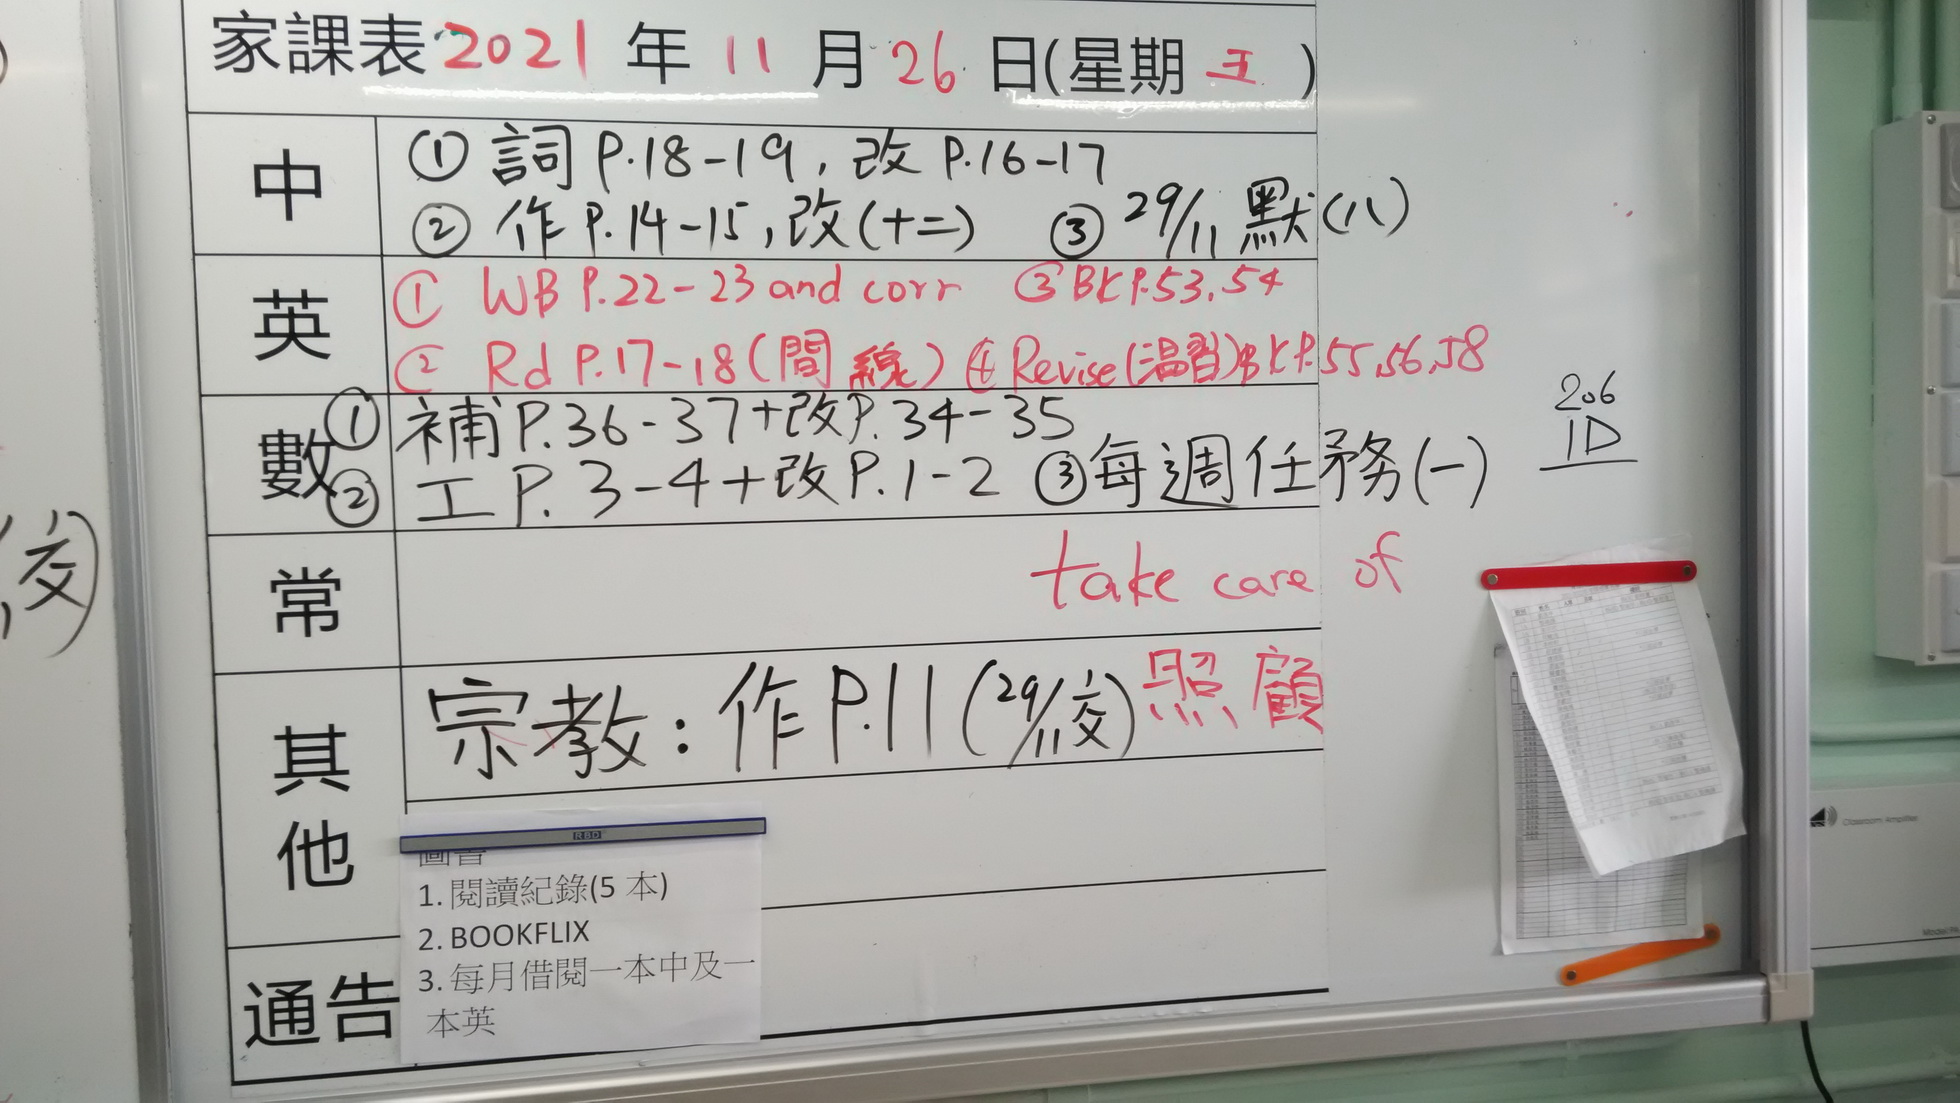 家課表 2021 年 11 月 26 日(星期 五 )
中
① 詞 P.18-19, 改 P.16-17
② 作 P.14-15, 改(十二) ③ 29/11 默(八)
英
① WB P.22-23 and corr ③ BK P.53,54
② Rd P.17-18(間線) ④ Revise(温習)BK P.55,56,58
數
① 補P.36-37+改P.34-35
② 工 P.3-4+改P.1-2 ③每週任務(一)
206
1D
常
take care of
其他
宗教:作P.11(29/11交) 照顧
RBD
圖書
1. 閱讀紀錄(5 本)
2. BOOKFLIX
3. 每月借閱一本中及一
本英
通告
交)
Classroom Amplifier